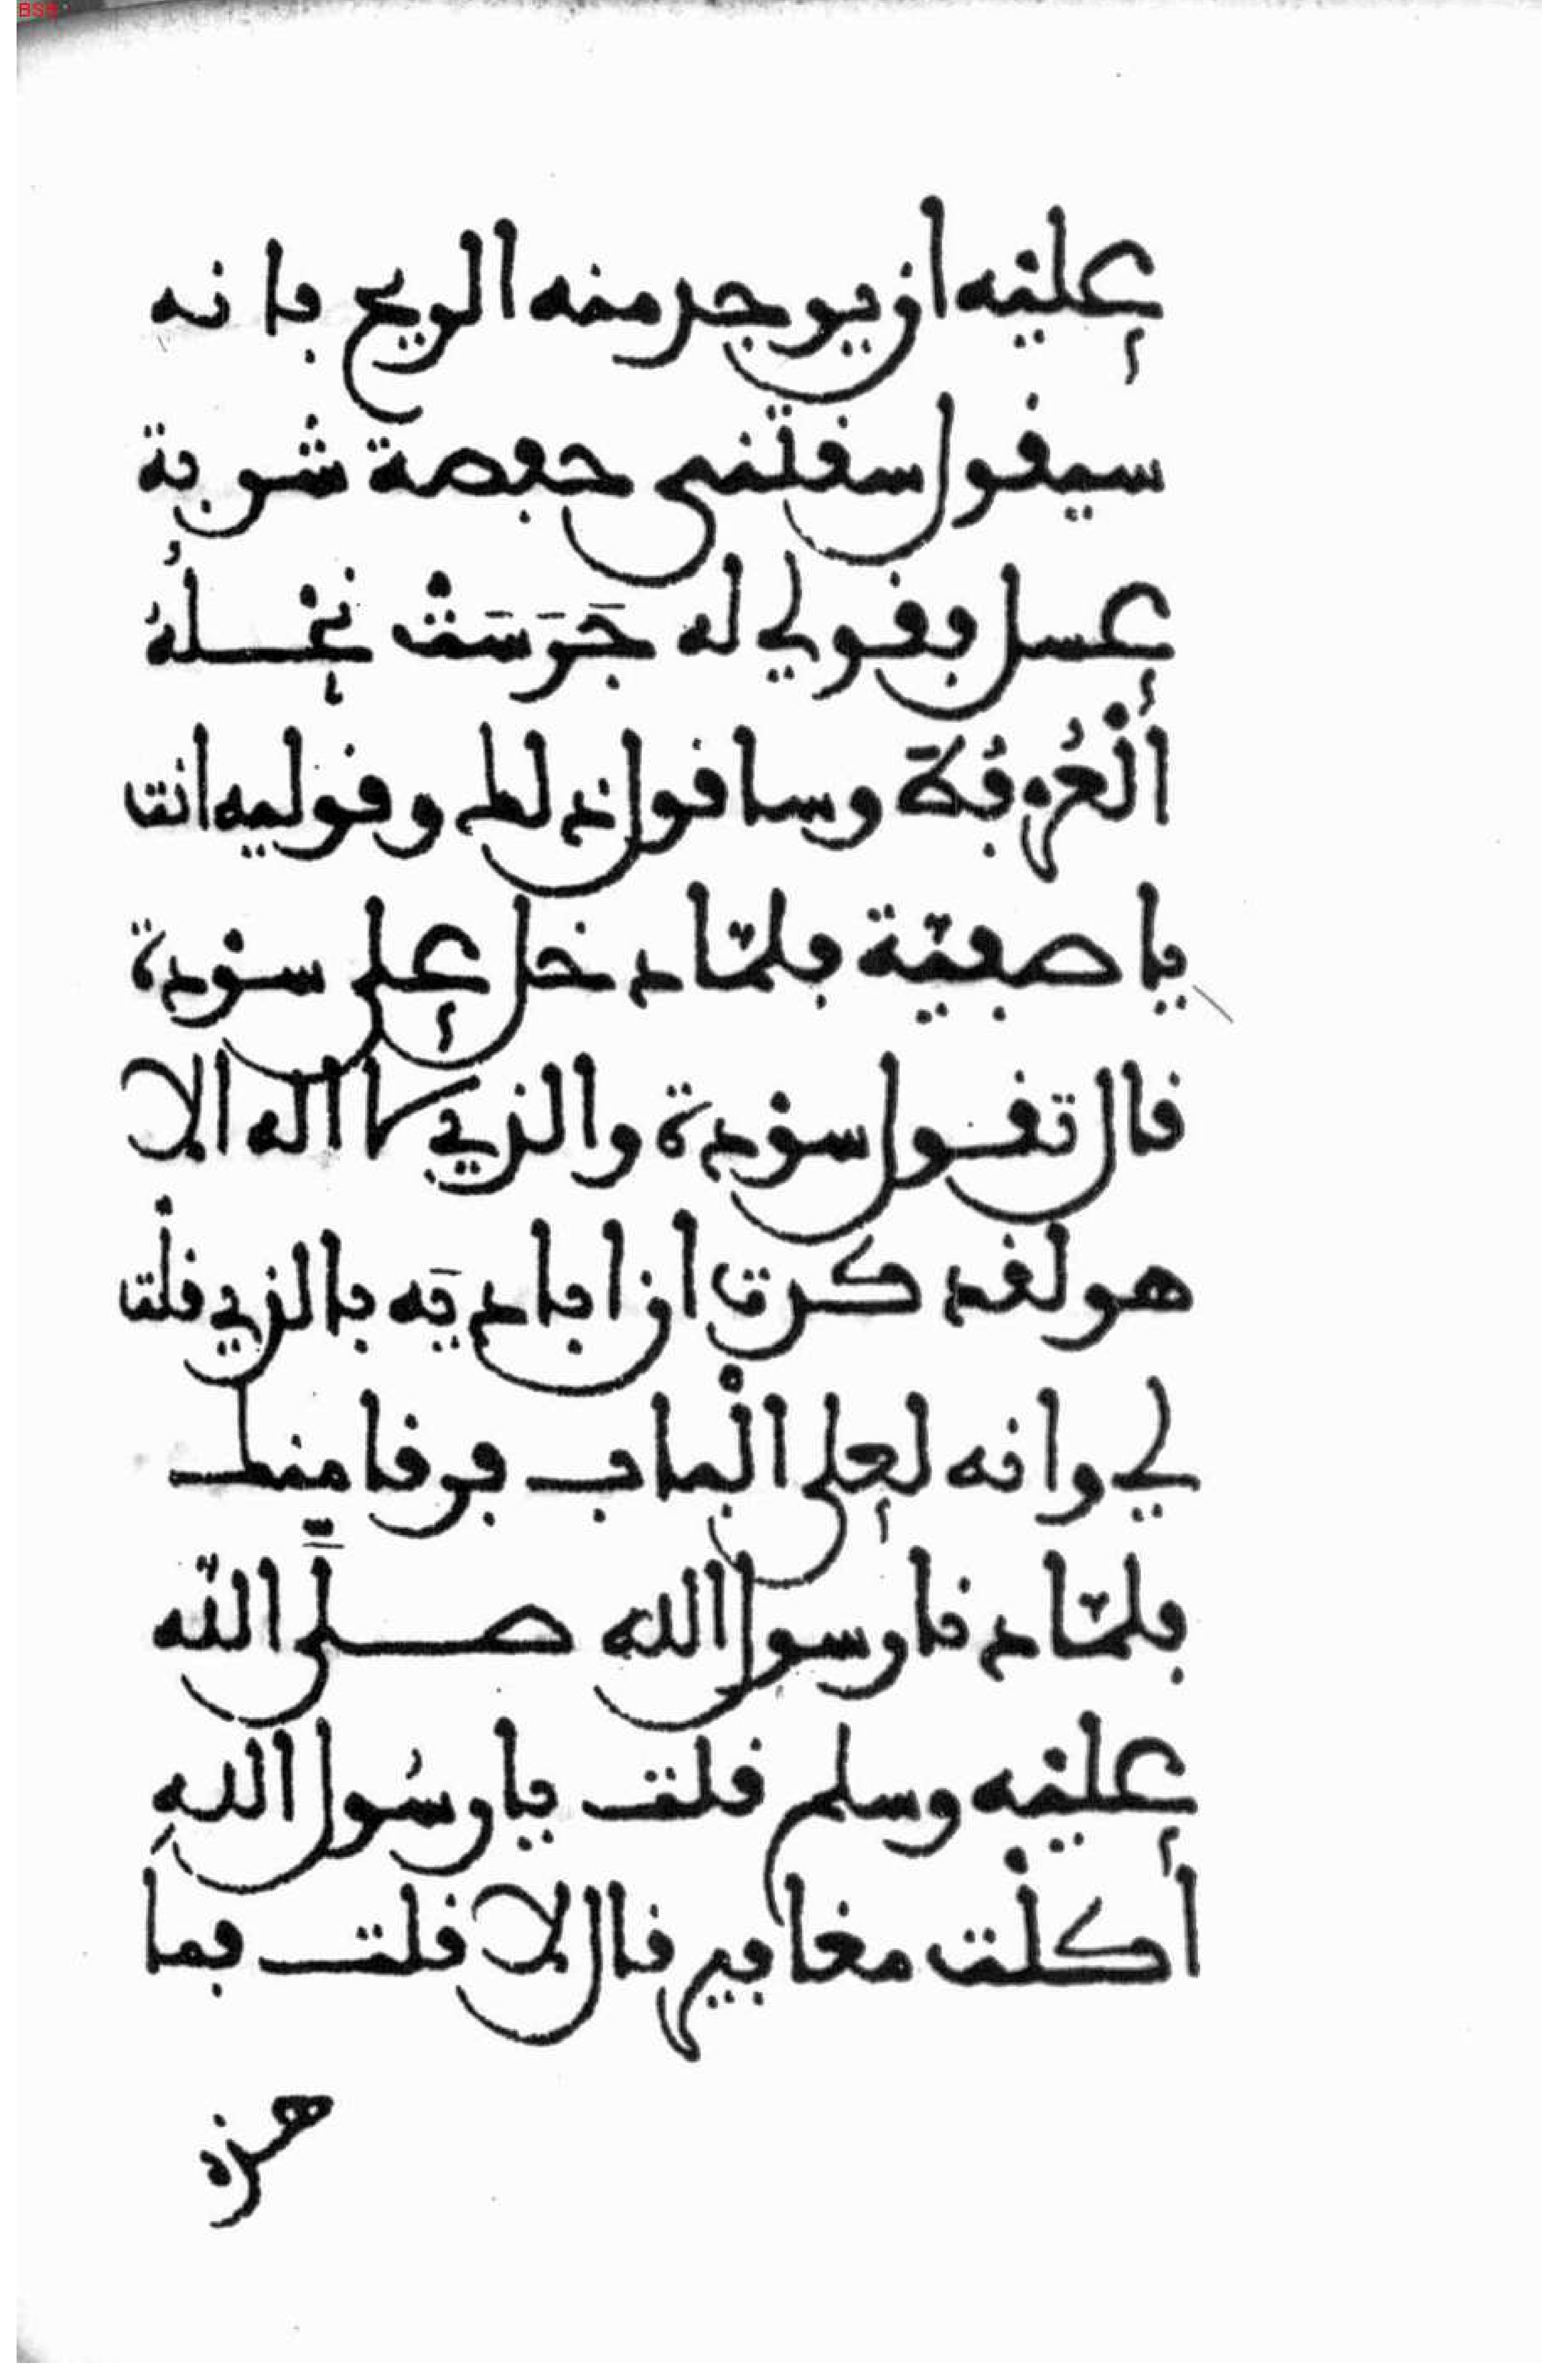 عليه ان يوجد منه الريح فانه
سيقول سقتني حفصة شربة
عسل فقولي له جَرَسَتْ نَحْلُهُ
ٱلْعُرْفُطَ وساقول ذلك وقوليه انت
يا صفيّة فلمّا دخل على سوْدة
قال تقول سوْدة والذي لا اله الا
هو لقد كدت ان اباديَه بالذي قلْت
لي وانه لعلى الْباب فرقا منك
فلمّا دنا رسول الله صلَّى اللّه
عليْه وسلم قلت يا رسُول اللهِ
أكلْت مغافير قال لا قلت فما
هذه